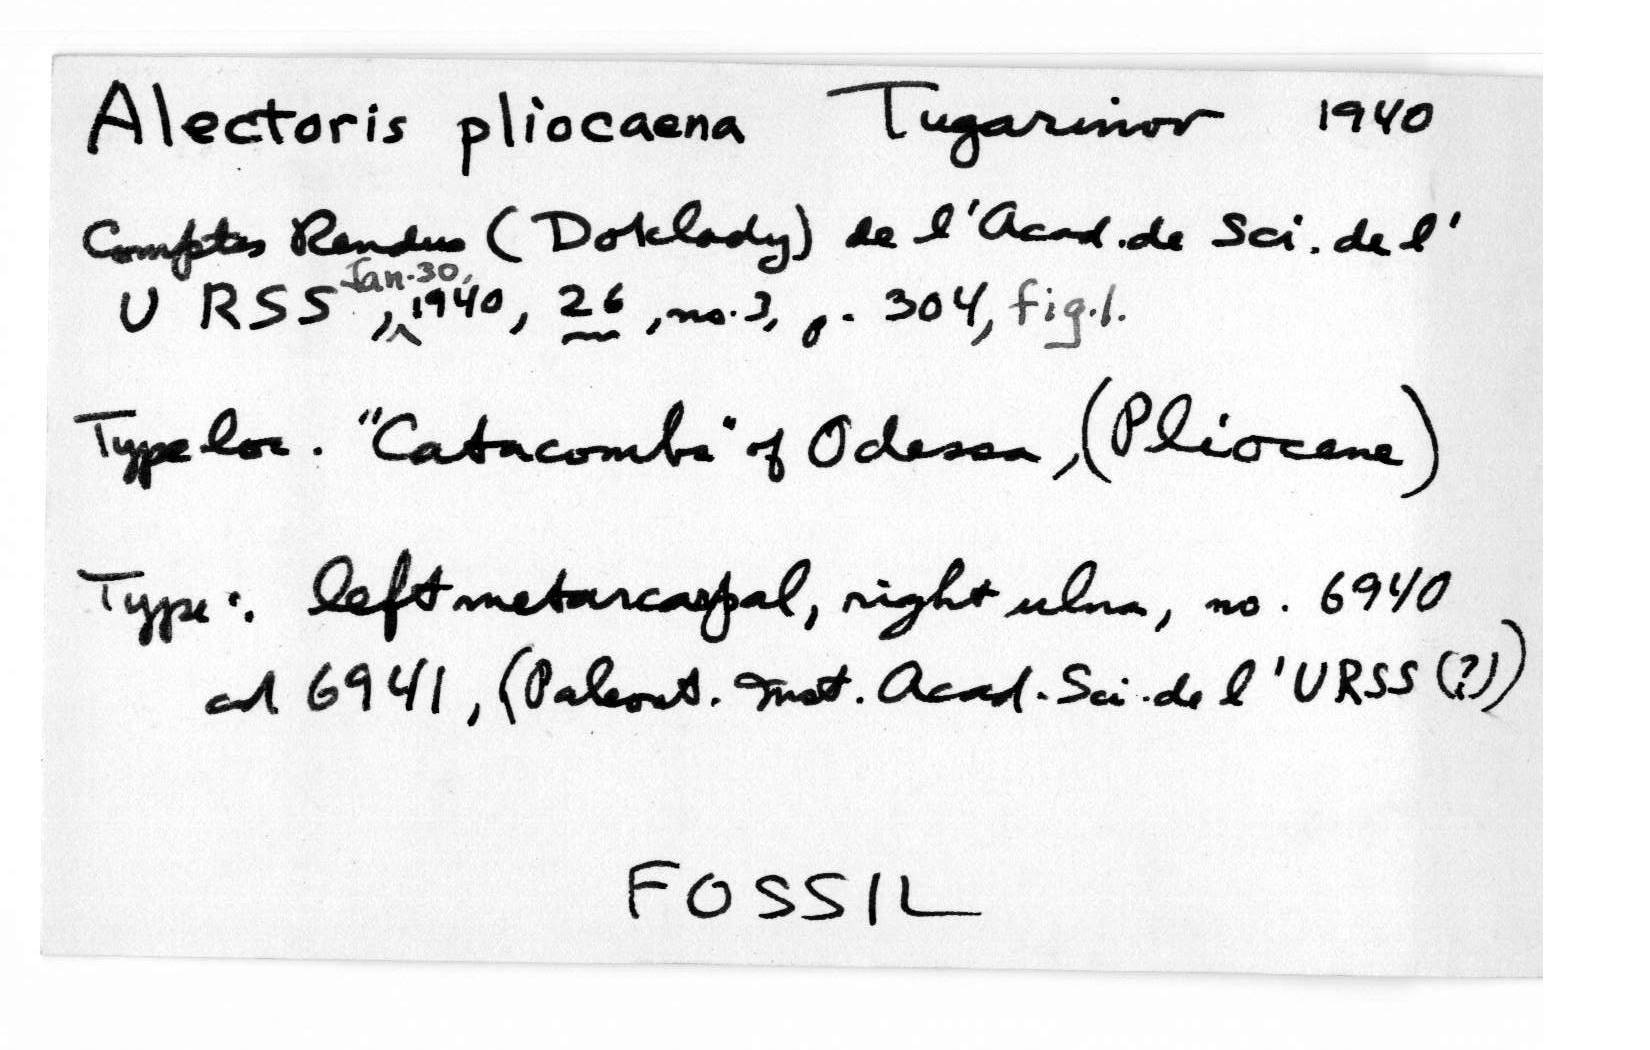 Alectoris pliocaena Tugarinov 1940
Comptes Rendus (Doklady) de l'Acad. de Sci. de l'
URSS, Jan. 30, 1940, 26, no. 3, p. 304, fig. 1.
Type loc. "Catacombs" of Odessa, (Pliocene)
Type: left metarcarpal, right ulna, no. 6940
and 6941, (Paleont. Inst. Acad. Sci. de l'URSS (?))
FOSSIL